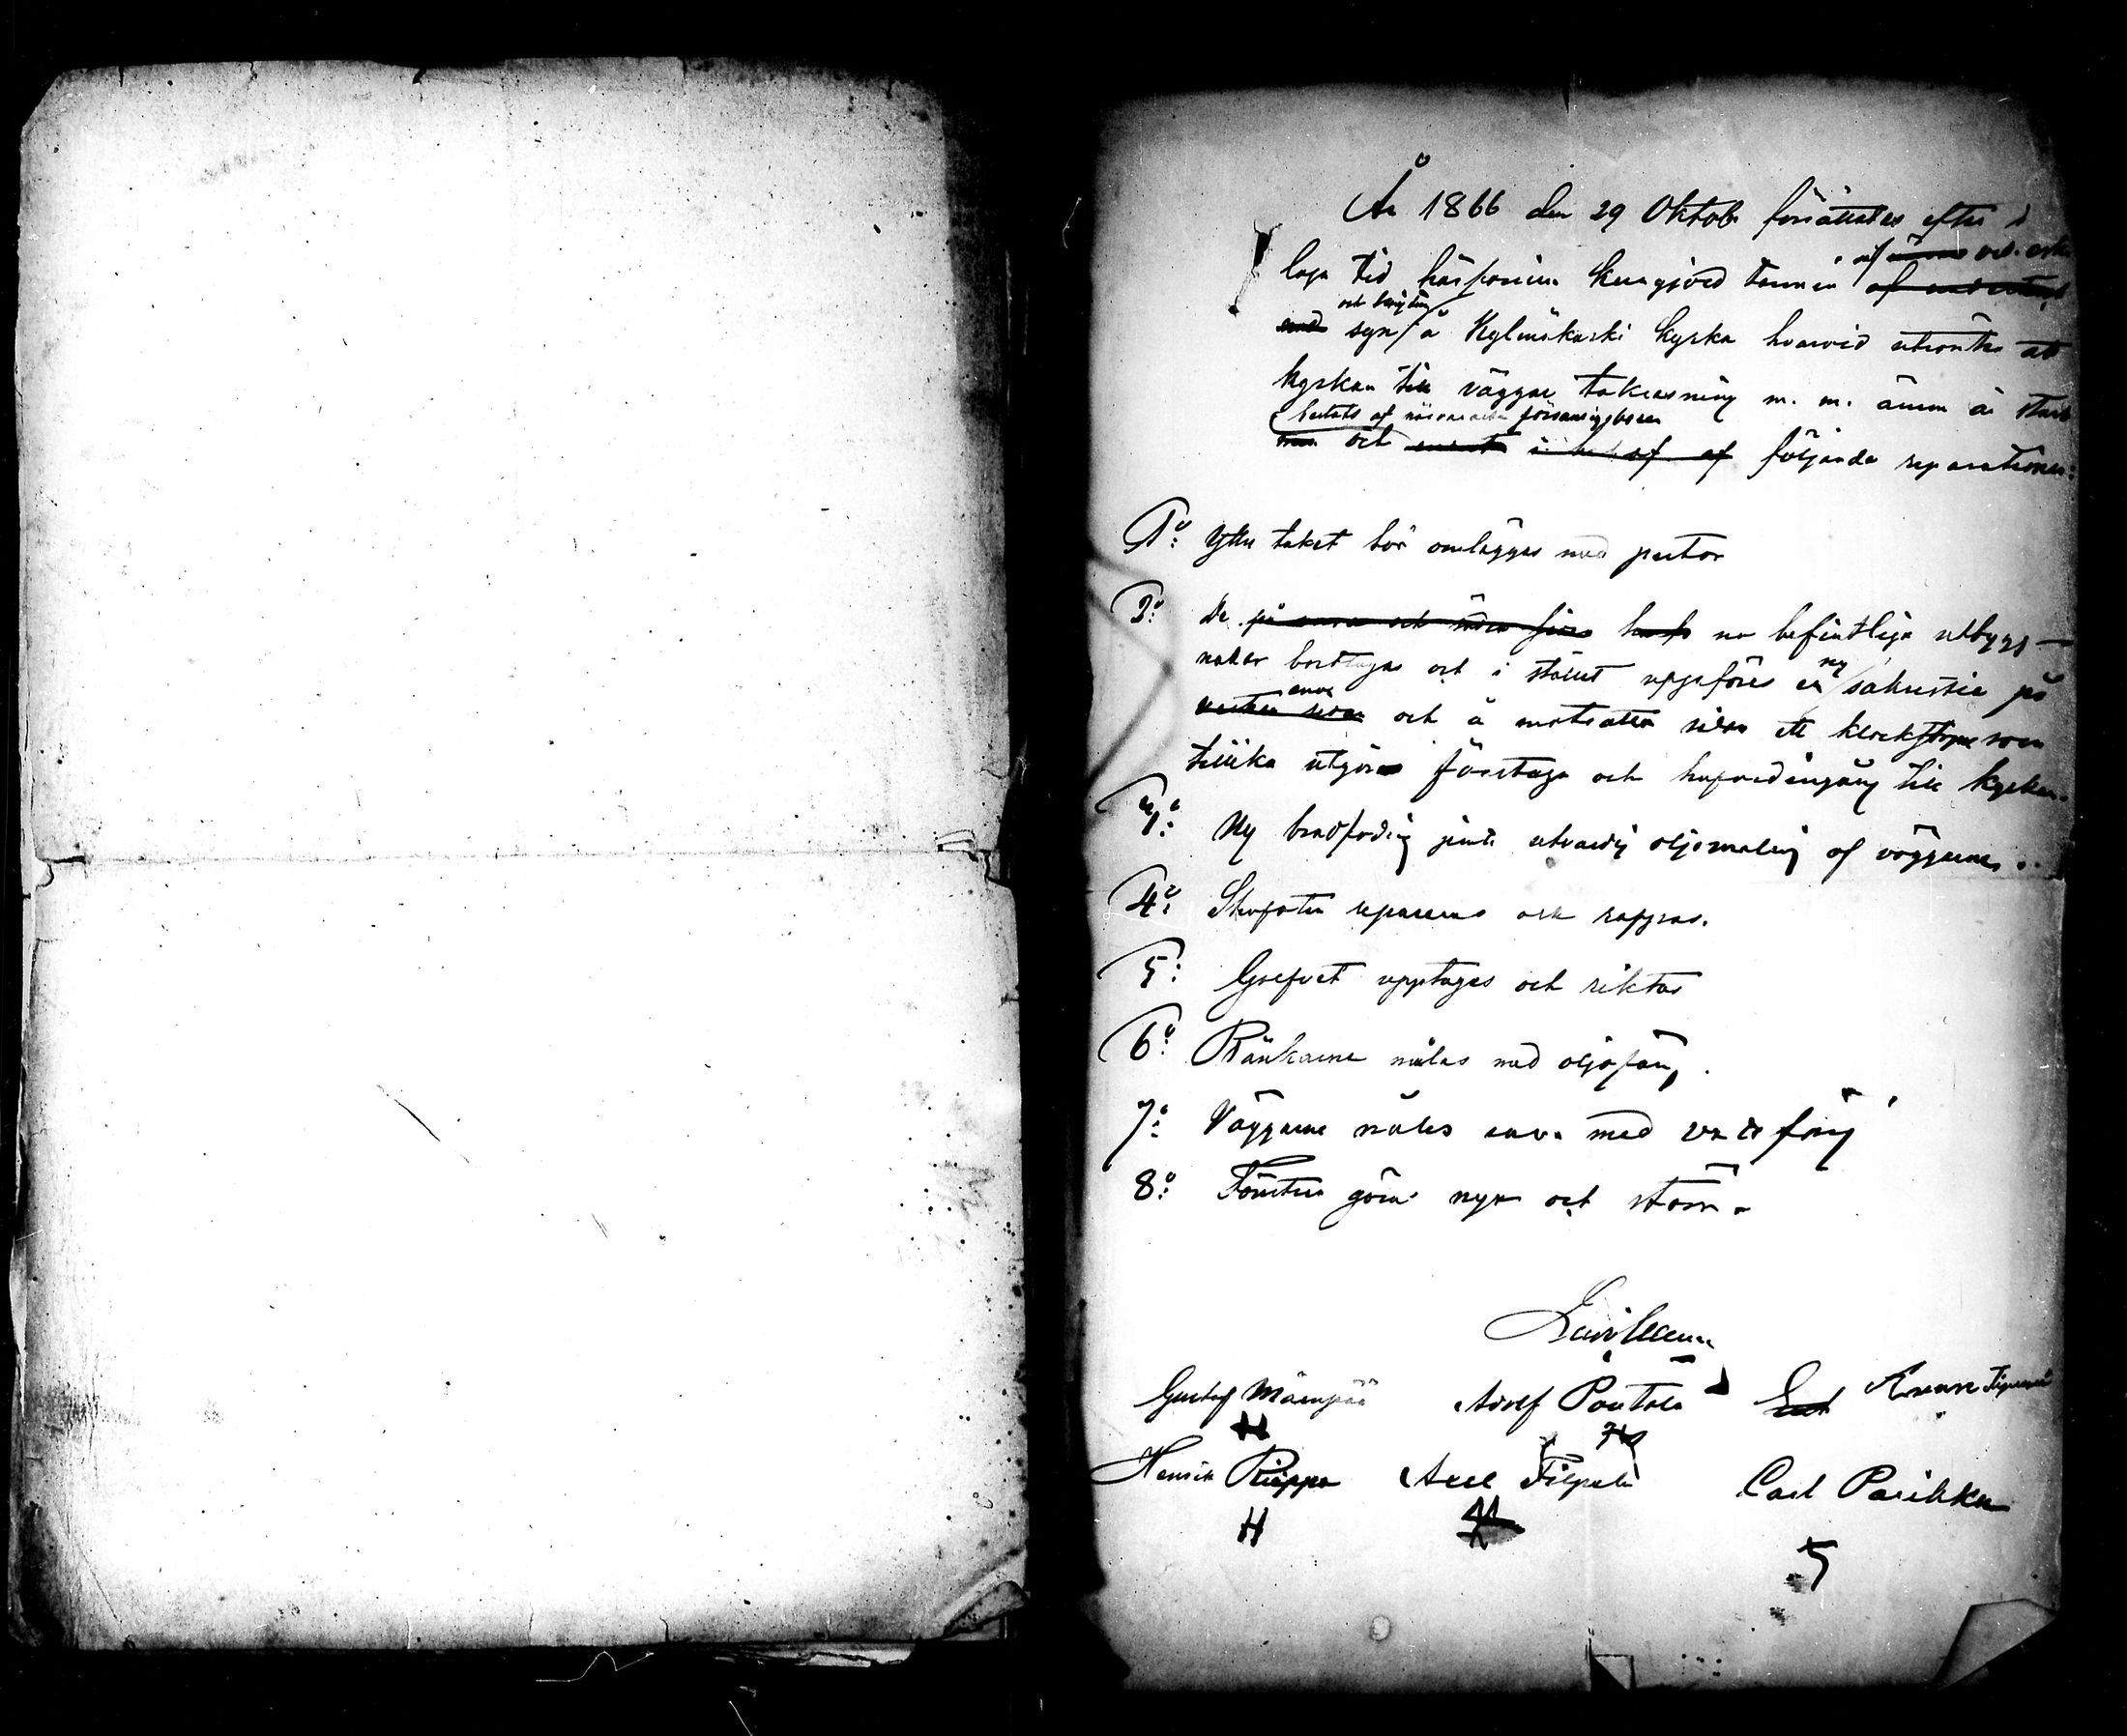 År 1866 den 29 Oktob. förrättades efter i
laga tid härförinna kungjord termin af
och besigtning
syn å Kylmäkoski kyrka hvarvid utröntes att
kyrkan till väggar takresning m. m. ännu är stark
närvarande församlingsboer
och följande reparationer:
1o: Yttre taket bör omläggas med pertor
2o: De nu befintliga utbygg-
nader borttagas och i stället uppföres en ny sakristia på
och å motsatta sidan ett klock som
tillika utgöra förstuga och hufvudingång till kyrkan.
3o: Ny brädfodring jemte utvändig oljemålning af väggarne.
4o: Stenfoten repareras och rappas.
5: Golfvet upptages och riktas
6o: Bänkarne målas med oljefärg.
7o: Väggarne målas med färg
8o: Fönstren göras nya och större
Gustaf Mäenpää Adolf Pontala
Henrik Riippa Axel Filpula Carl Parikka